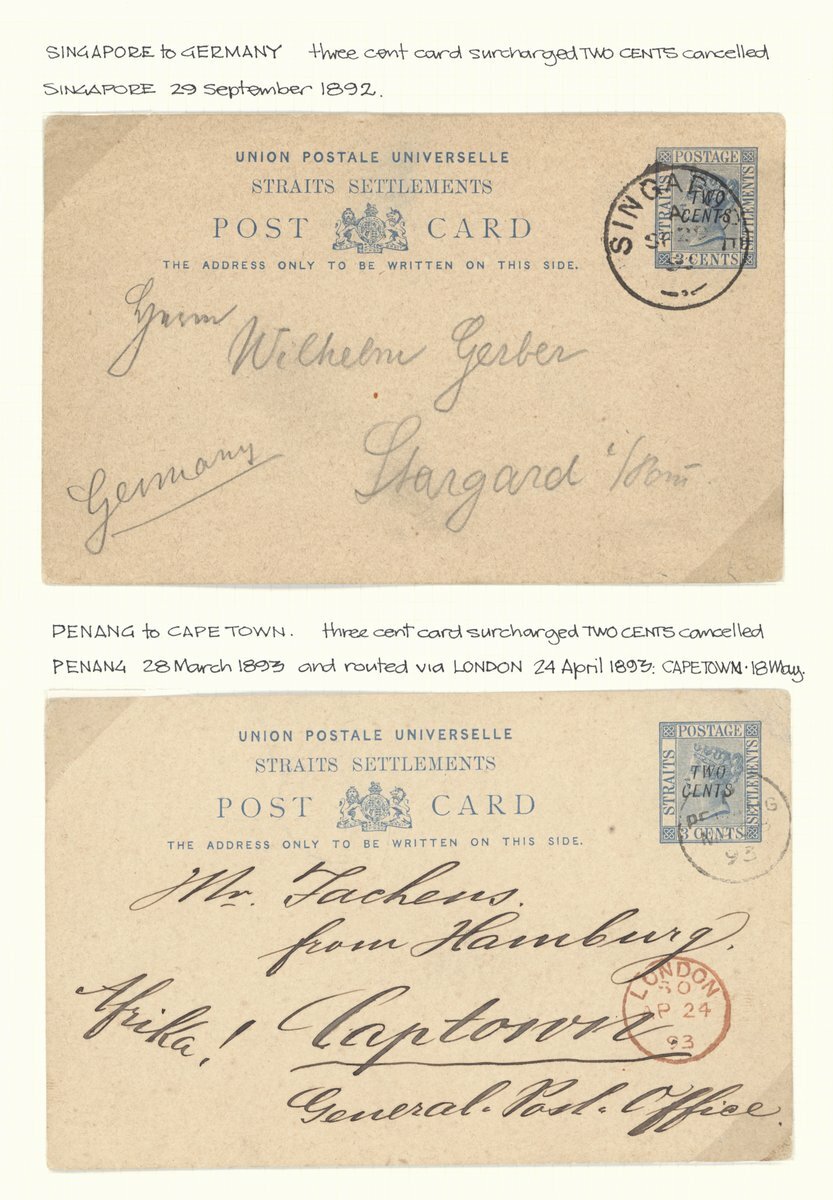 SINGAPORE to GERMANY three cent card surcharged TWO CENTS cancelled
SINGAPORE 29 September 1892.
UNION POSTALE UNIVERSELLE
STRAITS SETTLEMENTS
POST CARD
THE ADDRESS ONLY TO BE WRITTEN ON THIS SIDE.
POSTAGE
STRAITS
SETTLEMENTS
TWO
CENTS
3 CENTS
SINGAP
A
SP 29
Herrn
Wilhelm Gerber
Stargard i/Pom
Germany
PENANG to CAPE TOWN. three cent card surcharged TWO CENTS cancelled
PENANG 28 March 1893 and routed via LONDON 24 April 1893: CAPETOWN. 18 May.
UNION POSTALE UNIVERSELLE
STRAITS SETTLEMENTS
POST CARD
THE ADDRESS ONLY TO BE WRITTEN ON THIS SIDE.
POSTAGE
STRAITS
SETTLEMENTS
TWO
CENTS
3 CENTS
93
Mr. Jachens.
from Hamburg.
Afrika! Captown
General-Post-Office.
LONDON
AP 24
93